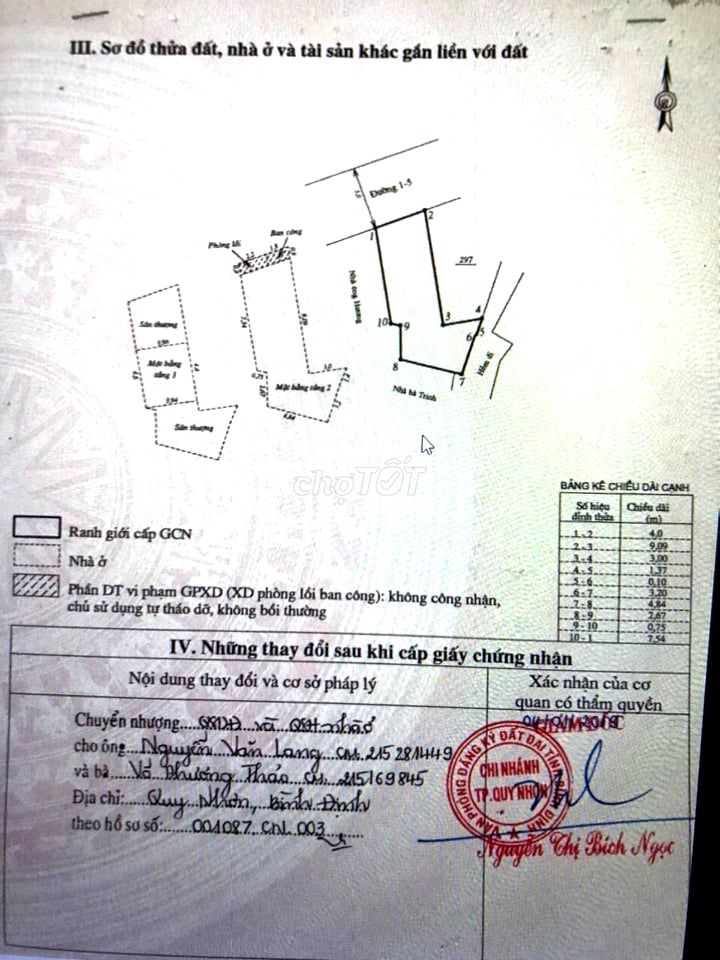 III. Sơ đồ thửa đất, nhà ở và tài sản khác gắn liền với đất
Đường 1-5
1
2
Ban công
Phòng lồi
297
Nhà ông Hương
Sân thượng
Mặt bằng tầng 3
Sân thượng
Mặt bằng tầng 2
10
9
3
4
5
6
8
7
Hẻm đi
Nhà bà Trinh
chợTỐT
BẢNG KÊ CHIỀU DÀI CẠNH
Số hiệu đỉnh thửa Chiều dài (m)
1 - 2 4,0
2 - 3 9,09
3 - 4 3,00
4 - 5 1,37
5 - 6 0,10
6 - 7 3,20
7 - 8 4,84
8 - 9 2,67
9 - 10 0,75
10 - 1 7,54
Ranh giới cấp GCN
Nhà ở
Phần DT vi phạm GPXD (XD phòng lồi ban công): không công nhận,
chủ sử dụng tự tháo dỡ, không bồi thường
IV. Những thay đổi sau khi cấp giấy chứng nhận
Nội dung thay đổi và cơ sở pháp lý
Xác nhận của cơ
quan có thẩm quyền
Chuyển nhượng QSDĐ và QSH nhà ở
cho ông Nguyễn Văn Lang CM: 215281449
và bà Võ Phương Thảo CM: 215169845
Địa chỉ: Quy Nhơn, Bình Định
theo hồ sơ số: 001087.CN.003
GIÁM ĐỐC
VĂN PHÒNG ĐĂNG KÝ ĐẤT ĐAI TỈNH BÌNH ĐỊNH
CHI NHÁNH
TP.QUY NHƠN
Nguyễn Thị Bích Ngọc